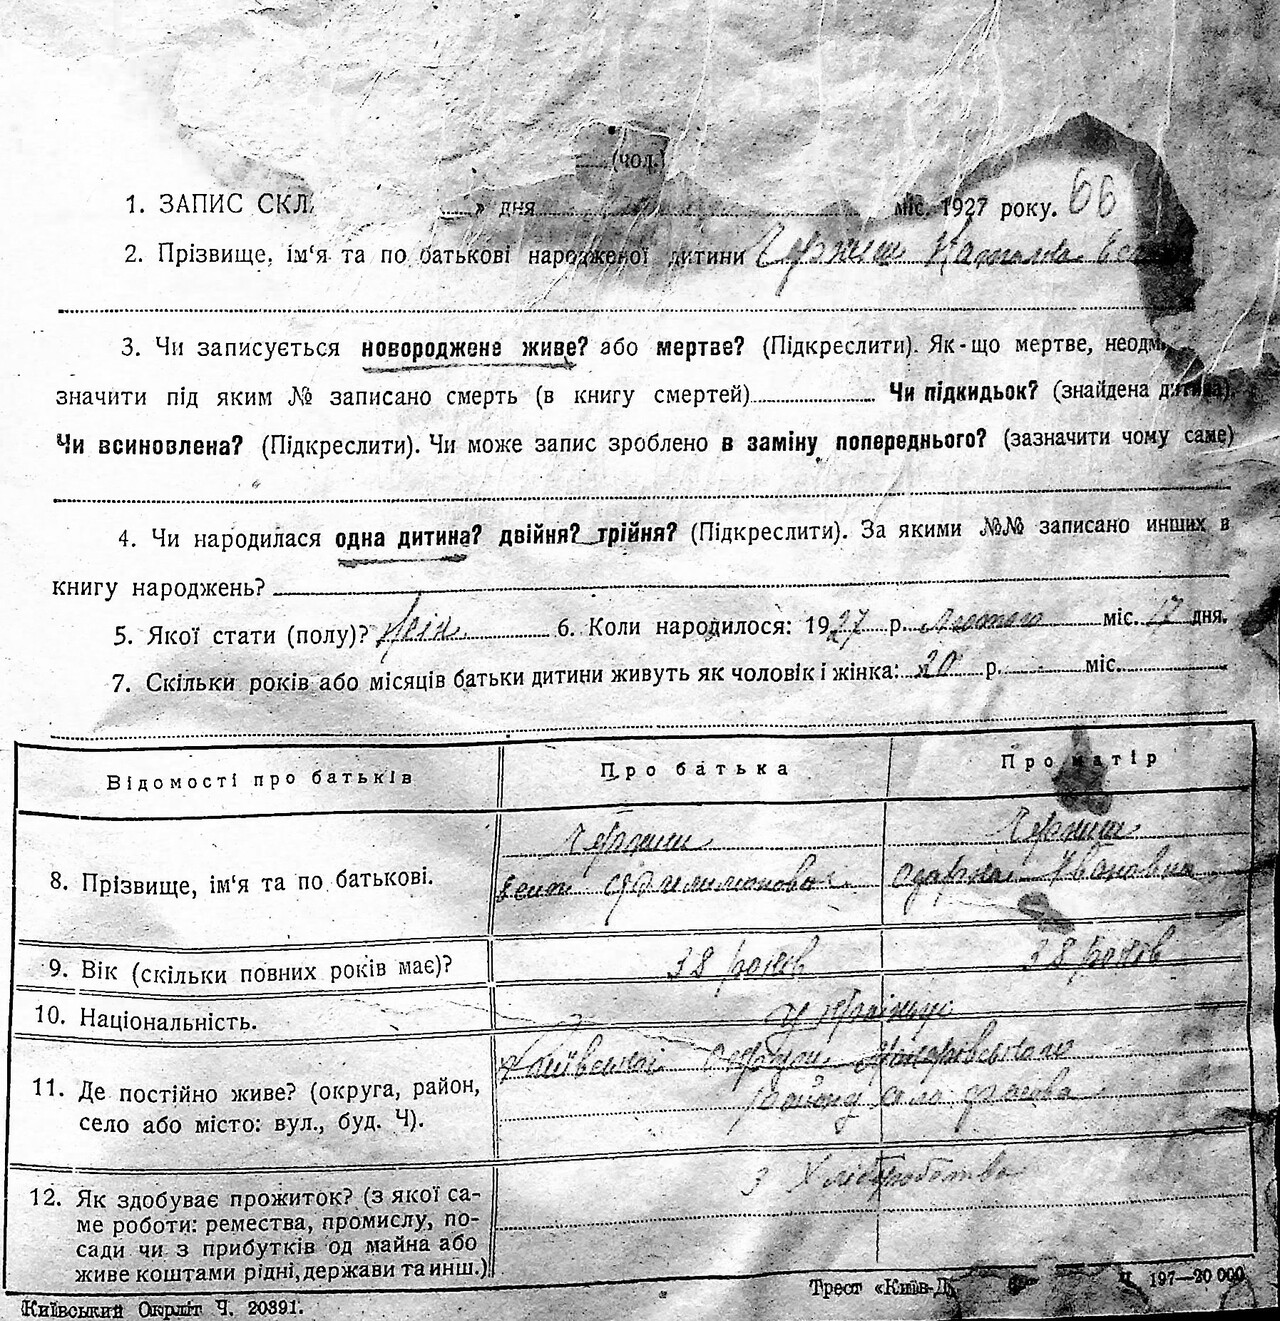 (чод.)
1. ЗАПИС СКЛ. „ “ дня міс. 1927 року. 66
2. Прізвище, ім‘я та по батькові народженої дитини
3. Чи записується новороджене живе? або мертве? (Підкреслити). Як-що мертве, неодм
значити під яким № записано смерть (в книгу смертей) Чи підкидьок? (знайдена дитина).
Чи всиновлена? (Підкреслити). Чи може запис зроблено в заміну попереднього? (зазначити чому саме)
4. Чи народилася одна дитина? двійня? трійня? (Підкреслити). За якими №№ записано инших в
книгу народжень?
5. Якої стати (полу)? 6. Коли народилося: 1927 р. лютого міс. 17 дня.
7. Скільки років або місяців батьки дитини живуть як чоловік і жінка: 20 р. - міс.
Відомості про батьків Про батька Про матір
8. Прізвище, ім‘я та по батькові.
Одарка Івановна
9. Вік (скільки повних років має)? 38 років 38 років
10. Національність. Українці
11. Де постійно живе? (округа, район,
село або місто: вул., буд. Ч).
Київської округи Макарівського
району село
12. Як здобуває прожиток? (з якої са-
ме роботи: ремества, промислу, по-
сади чи з прибутків од майна або
живе коштами рідні, держави та инш.)
З Хліборобства
Київський Окрліт Ч. 20391.
Трест «Київ-Д 197—20 000